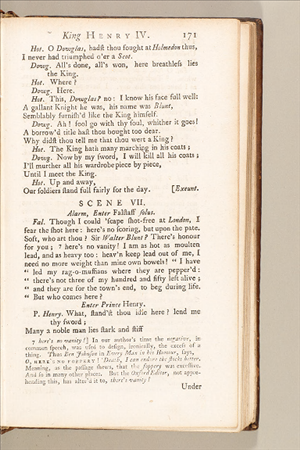 King HENRY IV. 171
Hot. O Douglas, hadst thou fought at Holmedon thus,
I never had triumphed o'er a Scot.
Doug. All's done, all's won, here breathless lies
the King.
Hot. Where?
Doug. Here.
Hot. This, Douglas? no: I know his face full well:
A gallant Knight he was, his name was Blunt,
Semblably furnish'd like the King himself.
Doug. Ah! fool go with thy soul, whither it goes!
A borrow'd title hast thou bought too dear.
Why didst thou tell me that thou wert a King?
Hot. The King hath many marching in his coats;
Doug. Now by my sword, I will kill all his coats;
I'll murther all his wardrobe piece by piece,
Until I meet the King.
Hot. Up and away,
Our soldiers stand full fairly for the day. [Exeunt.
SCENE VII.
Alarm, Enter Falstaff solus.
Fal. Though I could 'scape shot-free at London, I
fear the shot here: here's no scoring, but upon the pate.
Soft, who art thou? Sir Walter Blunt? There's honour
for you; 7 here's no vanity! I am as hot as moulten
lead, and as heavy too: heav'n keep lead out of me, I
need no more weight than mine own bowels! “ I have
“ led my rag-o-muffians where they are pepper'd:
“ there's not three of my hundred and fifty left alive;
“ and they are for the town's end, to beg during life.
“ But who comes here?
Enter Prince Henry.
P. Henry. What, stand'st thou idle here? lend me
thy sword;
Many a noble man lies stark and stiff
7 here's no vanity!] In our author's time the negative, in
common speech, was used to design, ironically, the excess of a
thing. Thus Ben Johnson in Every Man in his Humour, says,
O, HERE'S NO FOPPERY! 'Death, I can endure the stocks better.
Meaning, as the passage shews, that the foppery was excessive.
And so in many other places. But the Oxford Editor, not appre-
hending this, has alter'd it to, there's vanity!
Under